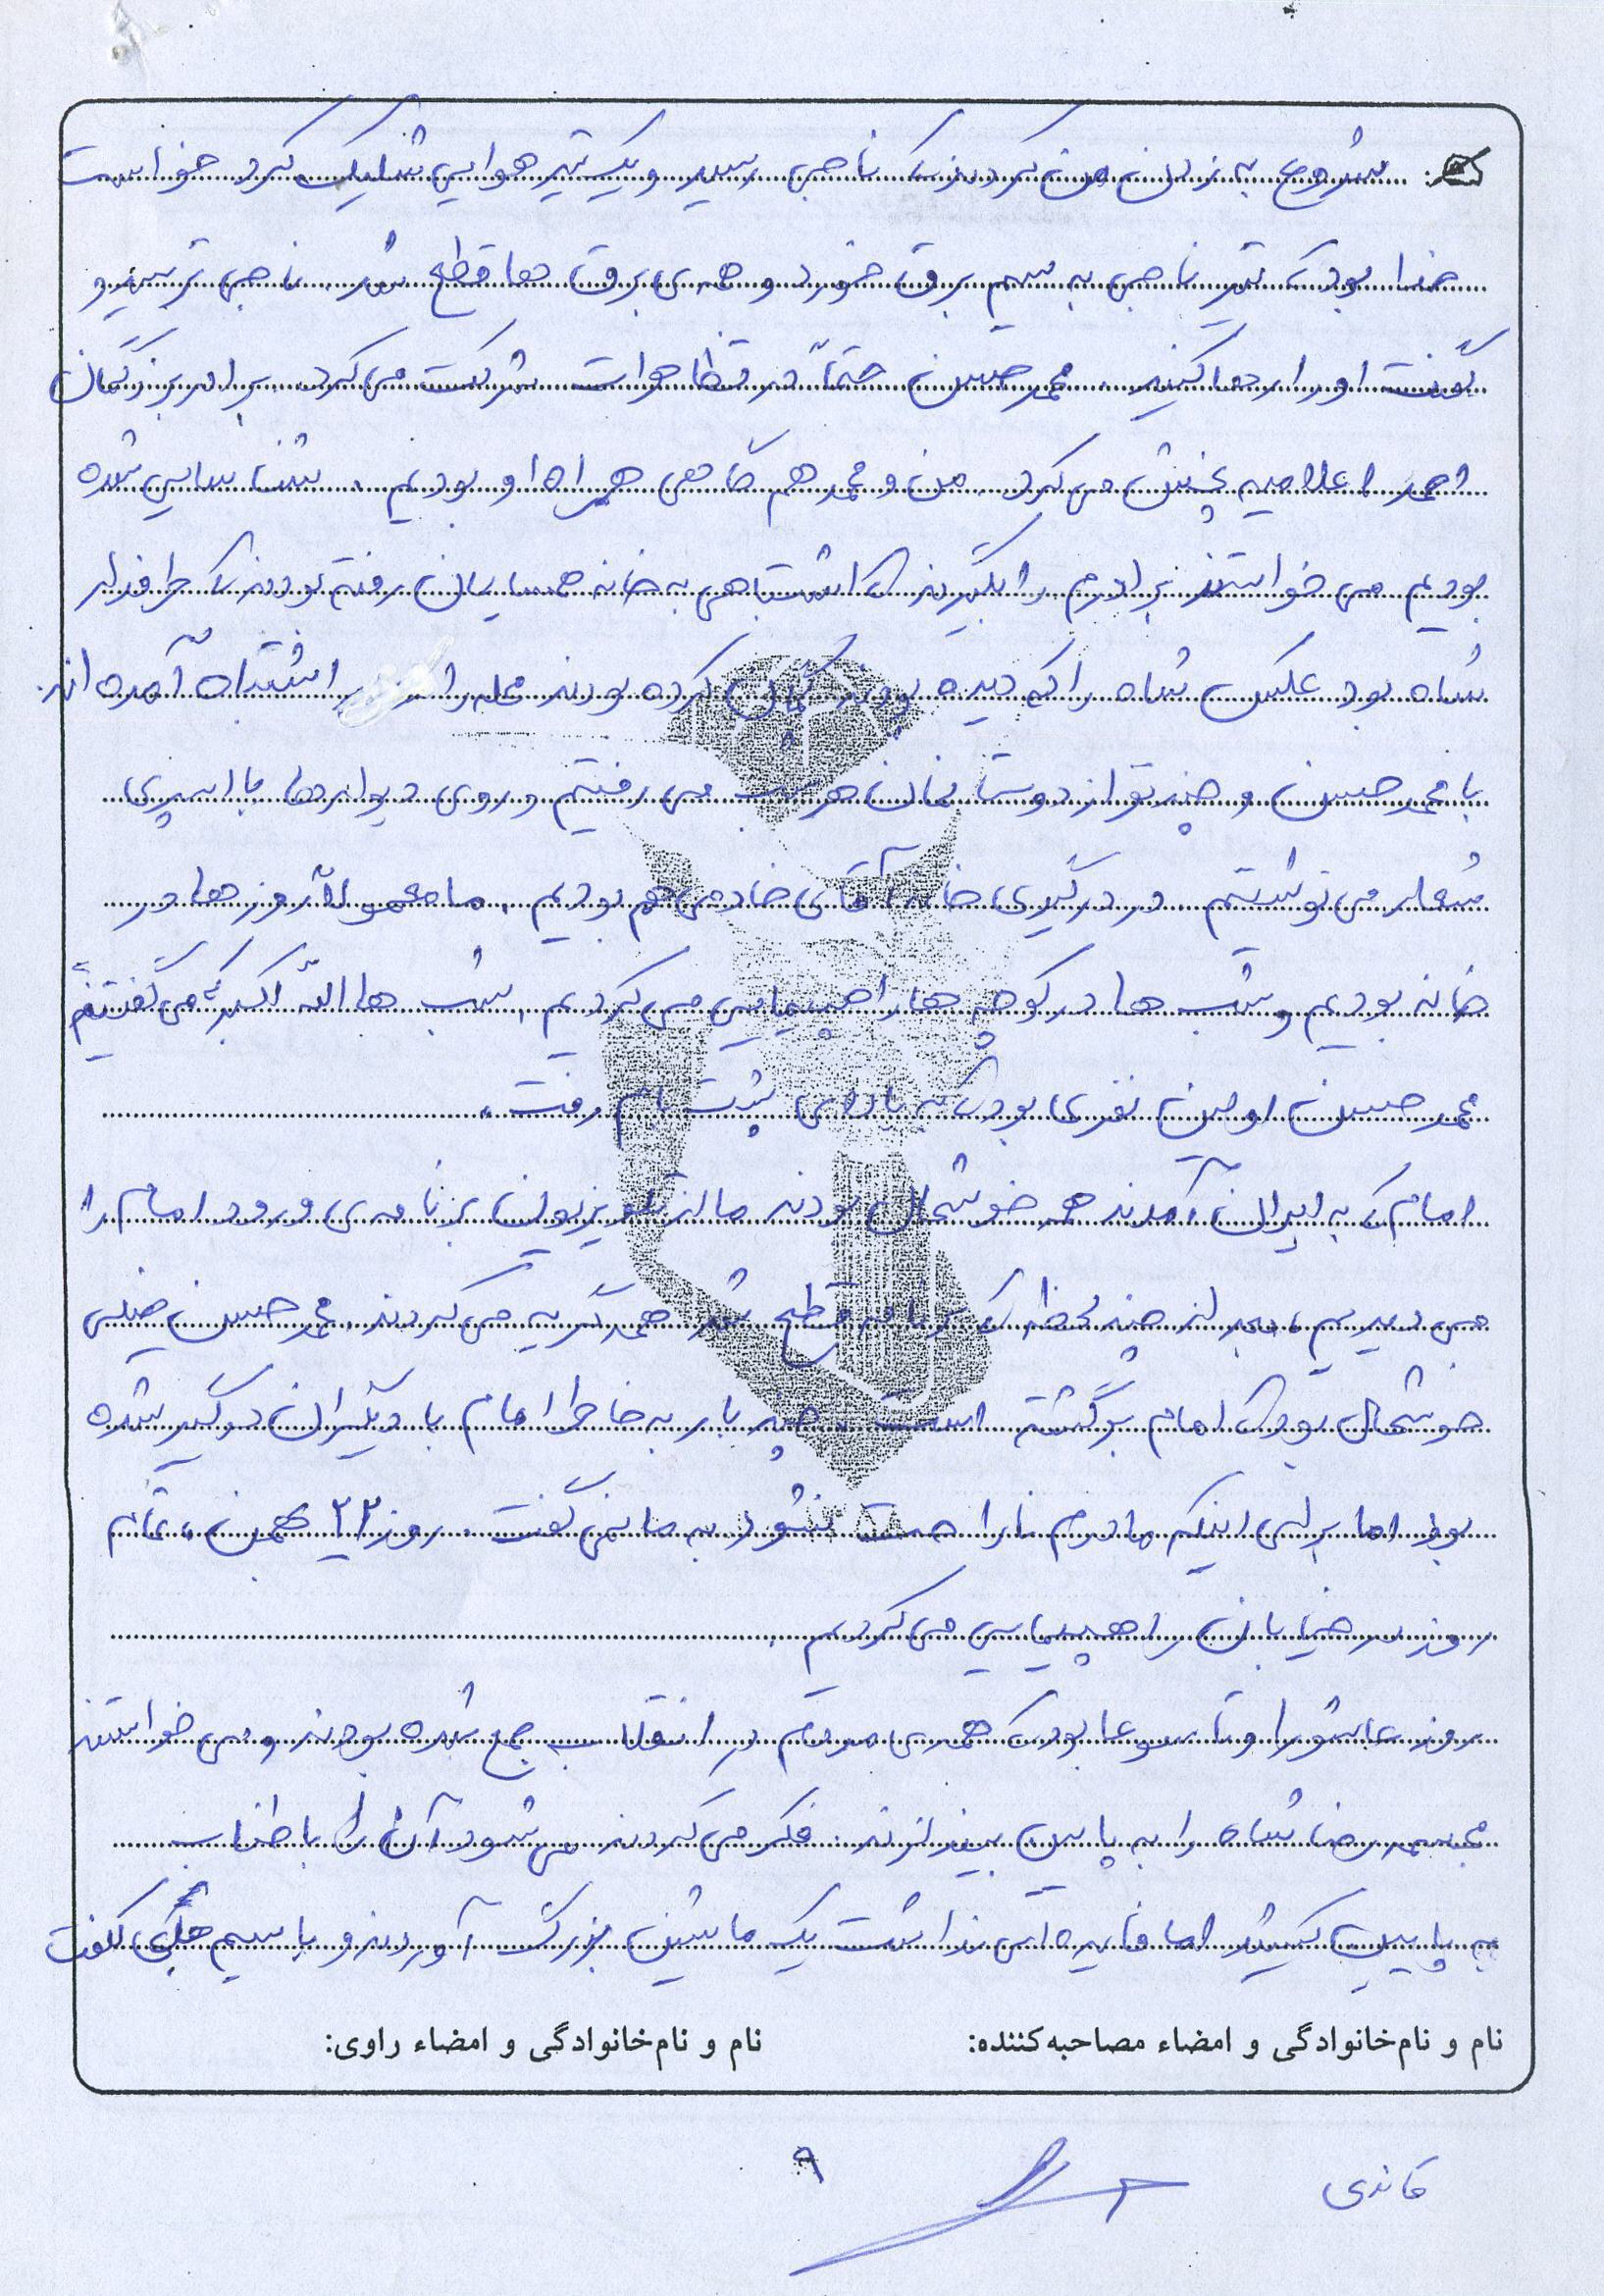 شروع به زدن من کردند که ناجی رسید و یک تیر هوایی شلیک کرد خواست
خدا بود که تیر ناجی به سیم برق خورد و همه‌ی برق ها قطع شد. ناجی ترسید و
گفت او را رها کنید. محمدحسین حتماً در تظاهرات شرکت می‌کرد. برادر بزرگمان
احمد اعلامیه پخش می‌کرد. من و محمد هم گاهی همراه او بودیم. شناسایی شده
بودیم می خواستند برادرم را بگیرند که اشتباهی به خانه همسایمان رفته بودند که طرفدار
شاه بود عکس شاه را که دیده بودند گمان کرده بودند محله را اشتباه آمده اند.
با محمدحسین و چند تو از دوستانمان هر شب می رفتیم و روی دیوارها با اسپری
شعار می نوشتیم. در درگیری خانه آقای خادمی هم بودیم. ما معمولاً روزها در
خانه بودیم و شب ها در کوچه ها راهپیمایی می کردیم. شب ها الله اکبر که می گفتیم
محمدحسین اولین نفری بود که بالای پشت بام رفت.
امام که به ایران آمدند همه خوشحال بودند ما از تلویزیون برنامه‌ی ورود امام را
می دیدیم، بعد از چند لحظه که برنامه قطع شد همه گریه می کردند. محمدحسین خیلی
خوشحال بود که امام برگشته است. چند بار به خاطر امام با دیگران درگیر شده
بود اما برای اینکه مادرم ناراحت نشود به ما نمی گفت. روز ۲۲ بهمن، تمام
روز در خیابان راهپیمایی می کردیم.
روز عاشورا و تاسوعا بود که همه‌ی مردم در انقلاب جمع شده بودند و می خواستند
مجسمه رضا شاه را به پایین بیندازند. فکر می کردند می شود آن را با طناب
به پایین کشید اما فایده ای نداشت یک ماشین بزرگ آوردند و با سیم کلفت
نام و نام‌خانوادگی و امضاء مصاحبه‌کننده: نام و نام‌خانوادگی و امضاء راوی:
۹